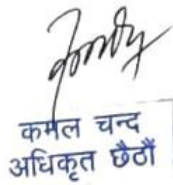 कमल चन्द
अधिकृत छैठौं